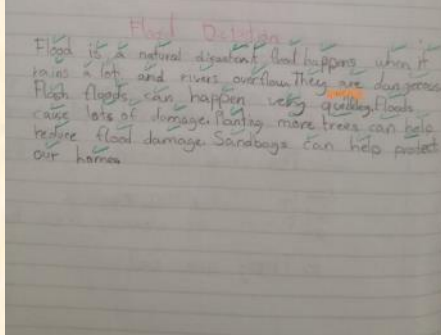 Flood Dictation
Flood is a natural disaster. A flood happens when it
rains a lot, and rivers overflow. They are dangerous
Flash floods can happen very quickley. Floods
cause lots of damage. Planting more trees can help
reduce flood damage. Sandbags can help protect
our homes